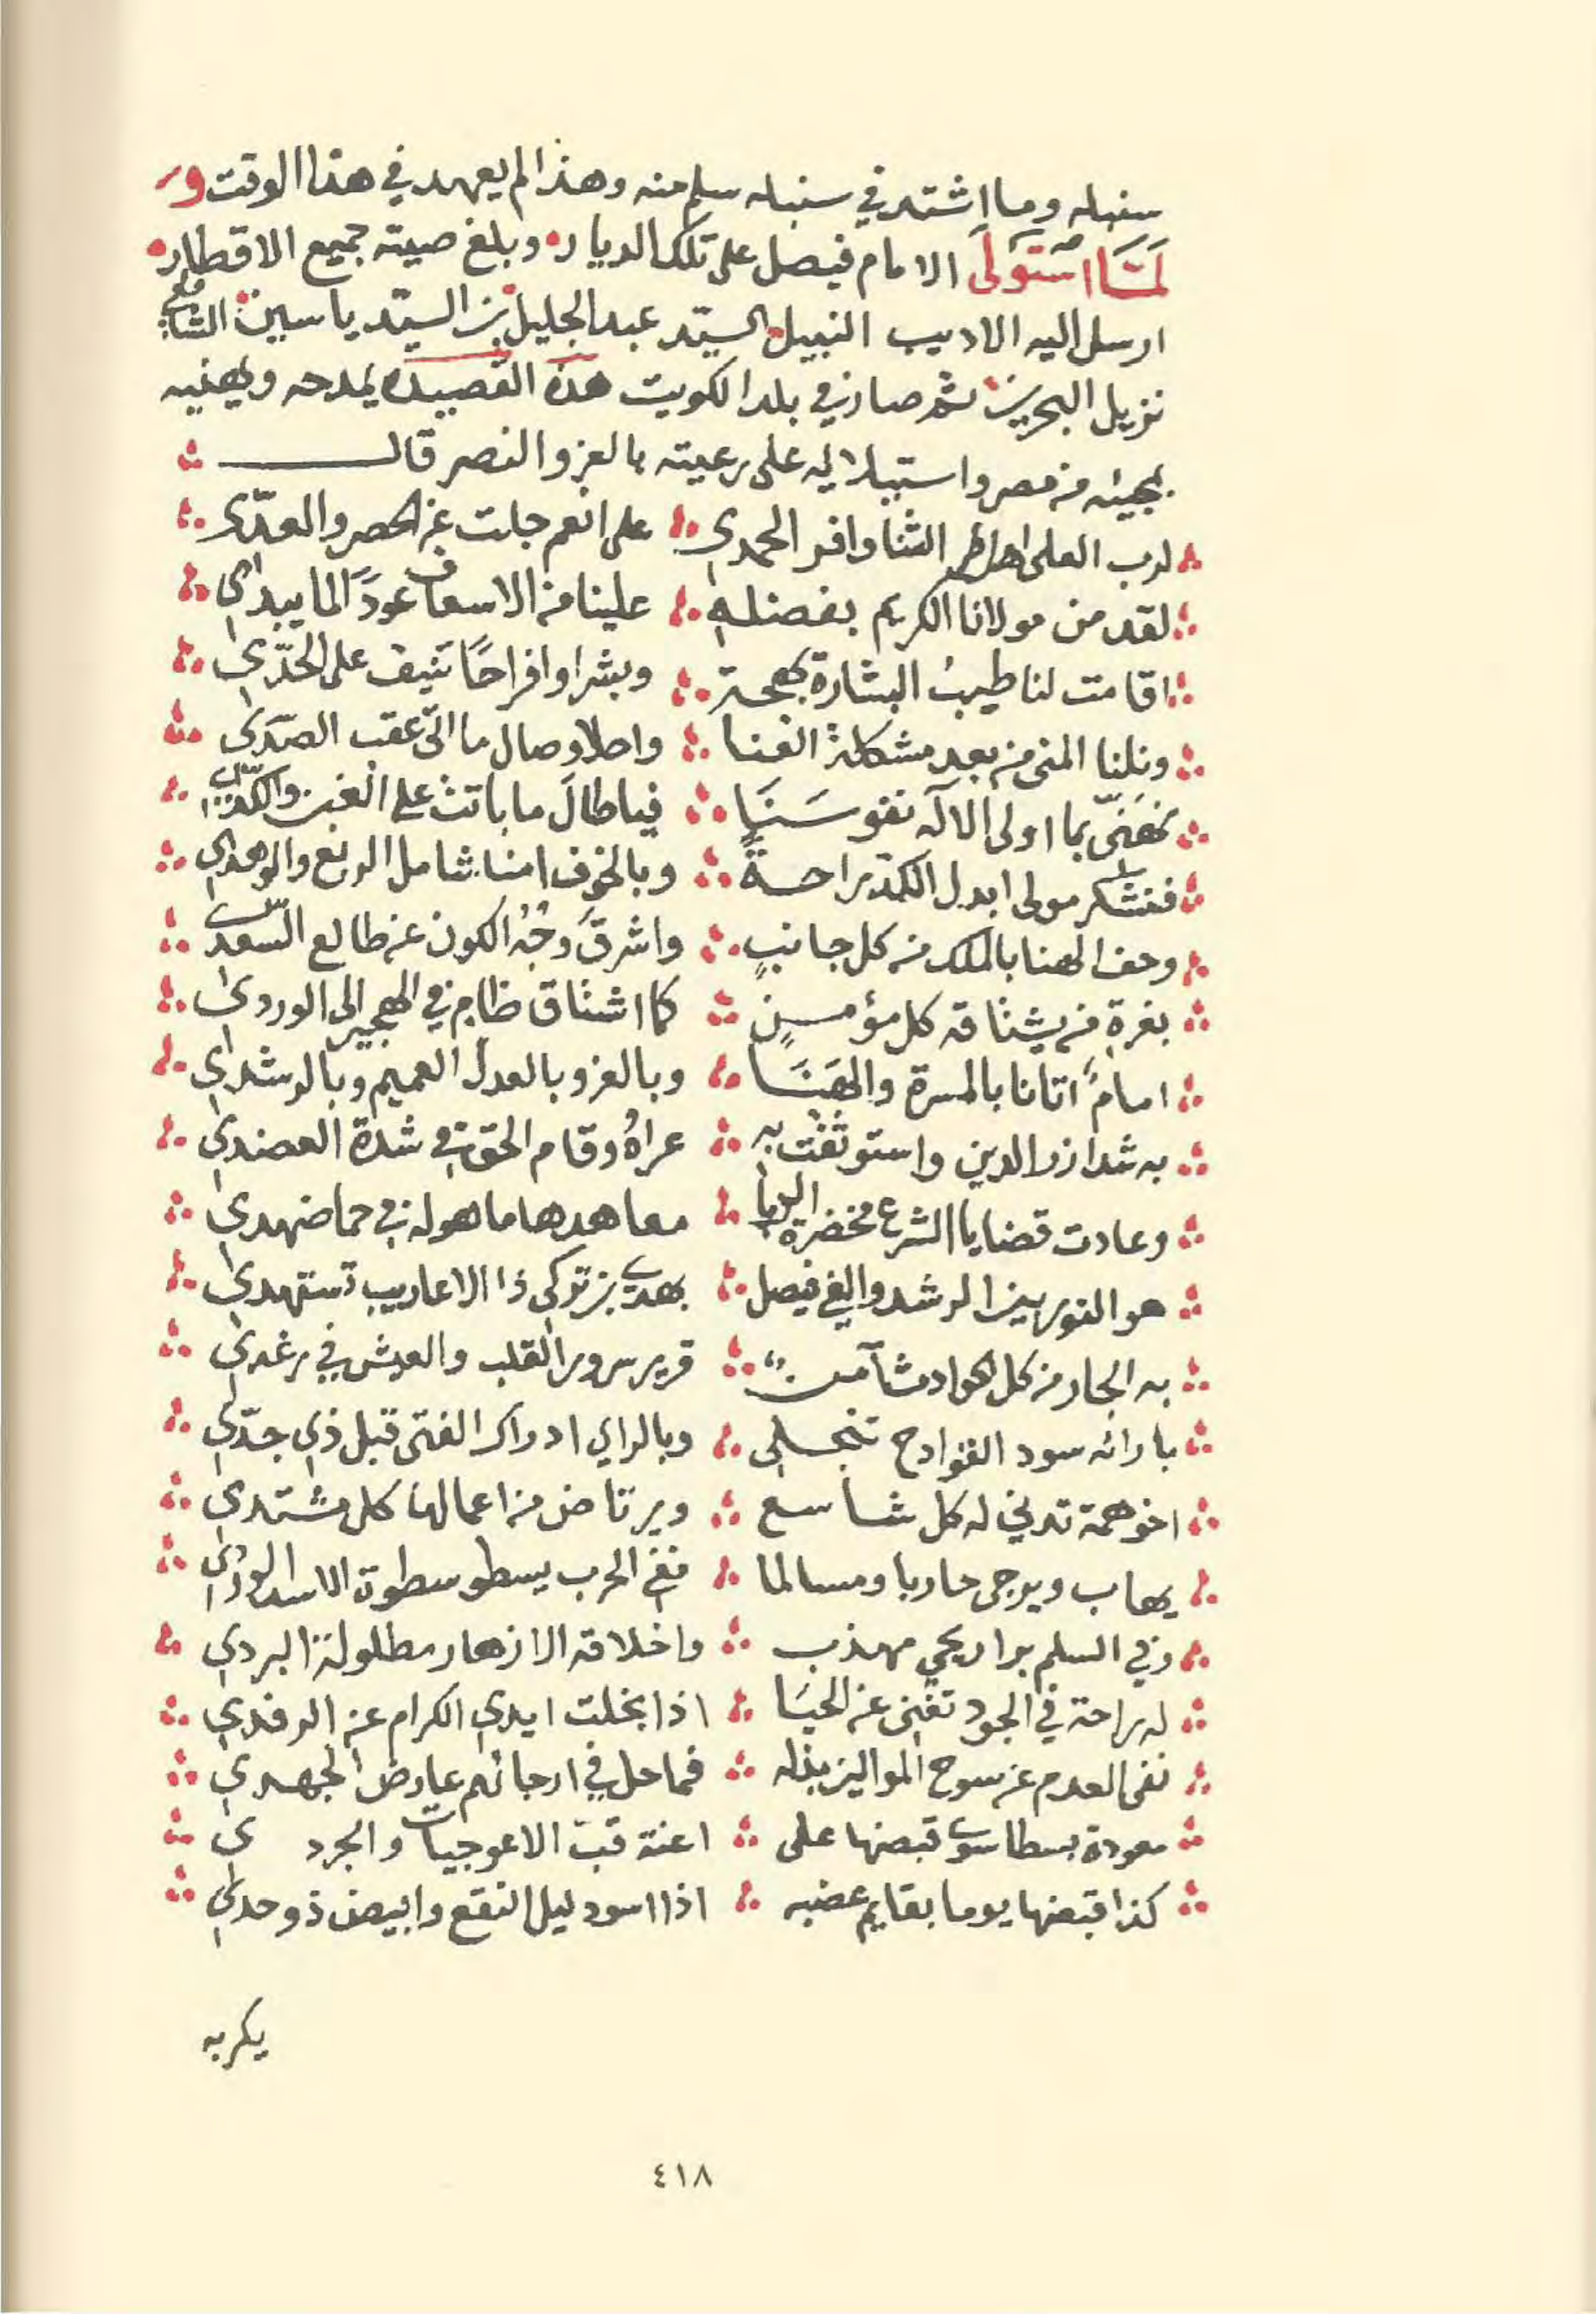 سنبله وما اشتد في سنبله سلم منه وهذا لم يعهد في هذا الوقت و
لَمَّا استَولَى الامام فيصل على تلك الديار وبلغ صيته جميع الاقطار
ارسل اليه الاديب النبيل السيّد عبدالجليل بن السيّد ياسين الشافعي
نزيل البحرين ثم صار في بلد الكويت هذه القصيده يمدحه ويهنيه
بمجيئه من مصر واستيلائه على رعيته بالعز والنصر قال
لرب العلى اهل الثنا وافر الحمدي على انعم جلت عن الحصر والعدّي
لقد من مولانا الكريم بفضله علينا من الاسعاف عودًا لما يبدي
اقامت لنا طيبُ البشارة بهجة وبشرا وافراحًا تنيف على الحدّي
ونلنا المنى من بعد مشكلة العنا واحلا وصال ما اتى عقب الصدّي
نهنّى بما اولى الالٓه نفوسَنَا فيا طالَ ما باتت على الغبن والكدّي
فنشكر مولى ابدل الكد راحةً وبالخوف امنا شامل الربع والوهدي
وحف الهنا بالملك من كل جانبٍ واشرقَ وجْهُ الكون عن طالع السّعدي
بغرة من يشتاقه كل مؤمنٍ كما اشتاق ظامٍ في الهجير الى الوردي
امامًا اتانا بالمسرة والهَنَا وبالعز وبالعدل العميم وبالرشدي
به شد ازر الدين واستوثقت به عراهُ وقام الحق في شدة العضدي
وعادت قضايا الشرع مخضرة الربا معاهدها ماهوله في حما ضهدي
هو النور بين الرشد والغي فيصل بهدي بن تركى ذا الاعاريب تستهدي
به الجار من كل الحوادث آمن قرير سرور القلب والعيش في رغدي
بارائه سود الفوادح تنجلي وبالراي ادراك الفتى قبل ذي جدّي
اخو همة تدني له كل شاسع ويرتاض من اعمالها كل مشتدي
يهاب ويرجى حاربا ومسالما ففي الحرب يسطو سطوة الاسد الوردي
وفي السلم برا اريحي مهذب واخلاقه الازهار مطلولة البردي
له راحة في الجود تغني عن الحيَا اذا بخلت ايدي الكرام عن الرفدي
نفى العدم عن سوح الموالين بذله فما حل في ارجائهم عارض الجهدي
معودة بسطا سوى قبضها على اعنة قبّ الاعوجيات والجرد ي
كذا قبضها يوما بقايم عضبه اذا اسود ليل النقع وابيض ذو حدي
يكر به
٤١٨